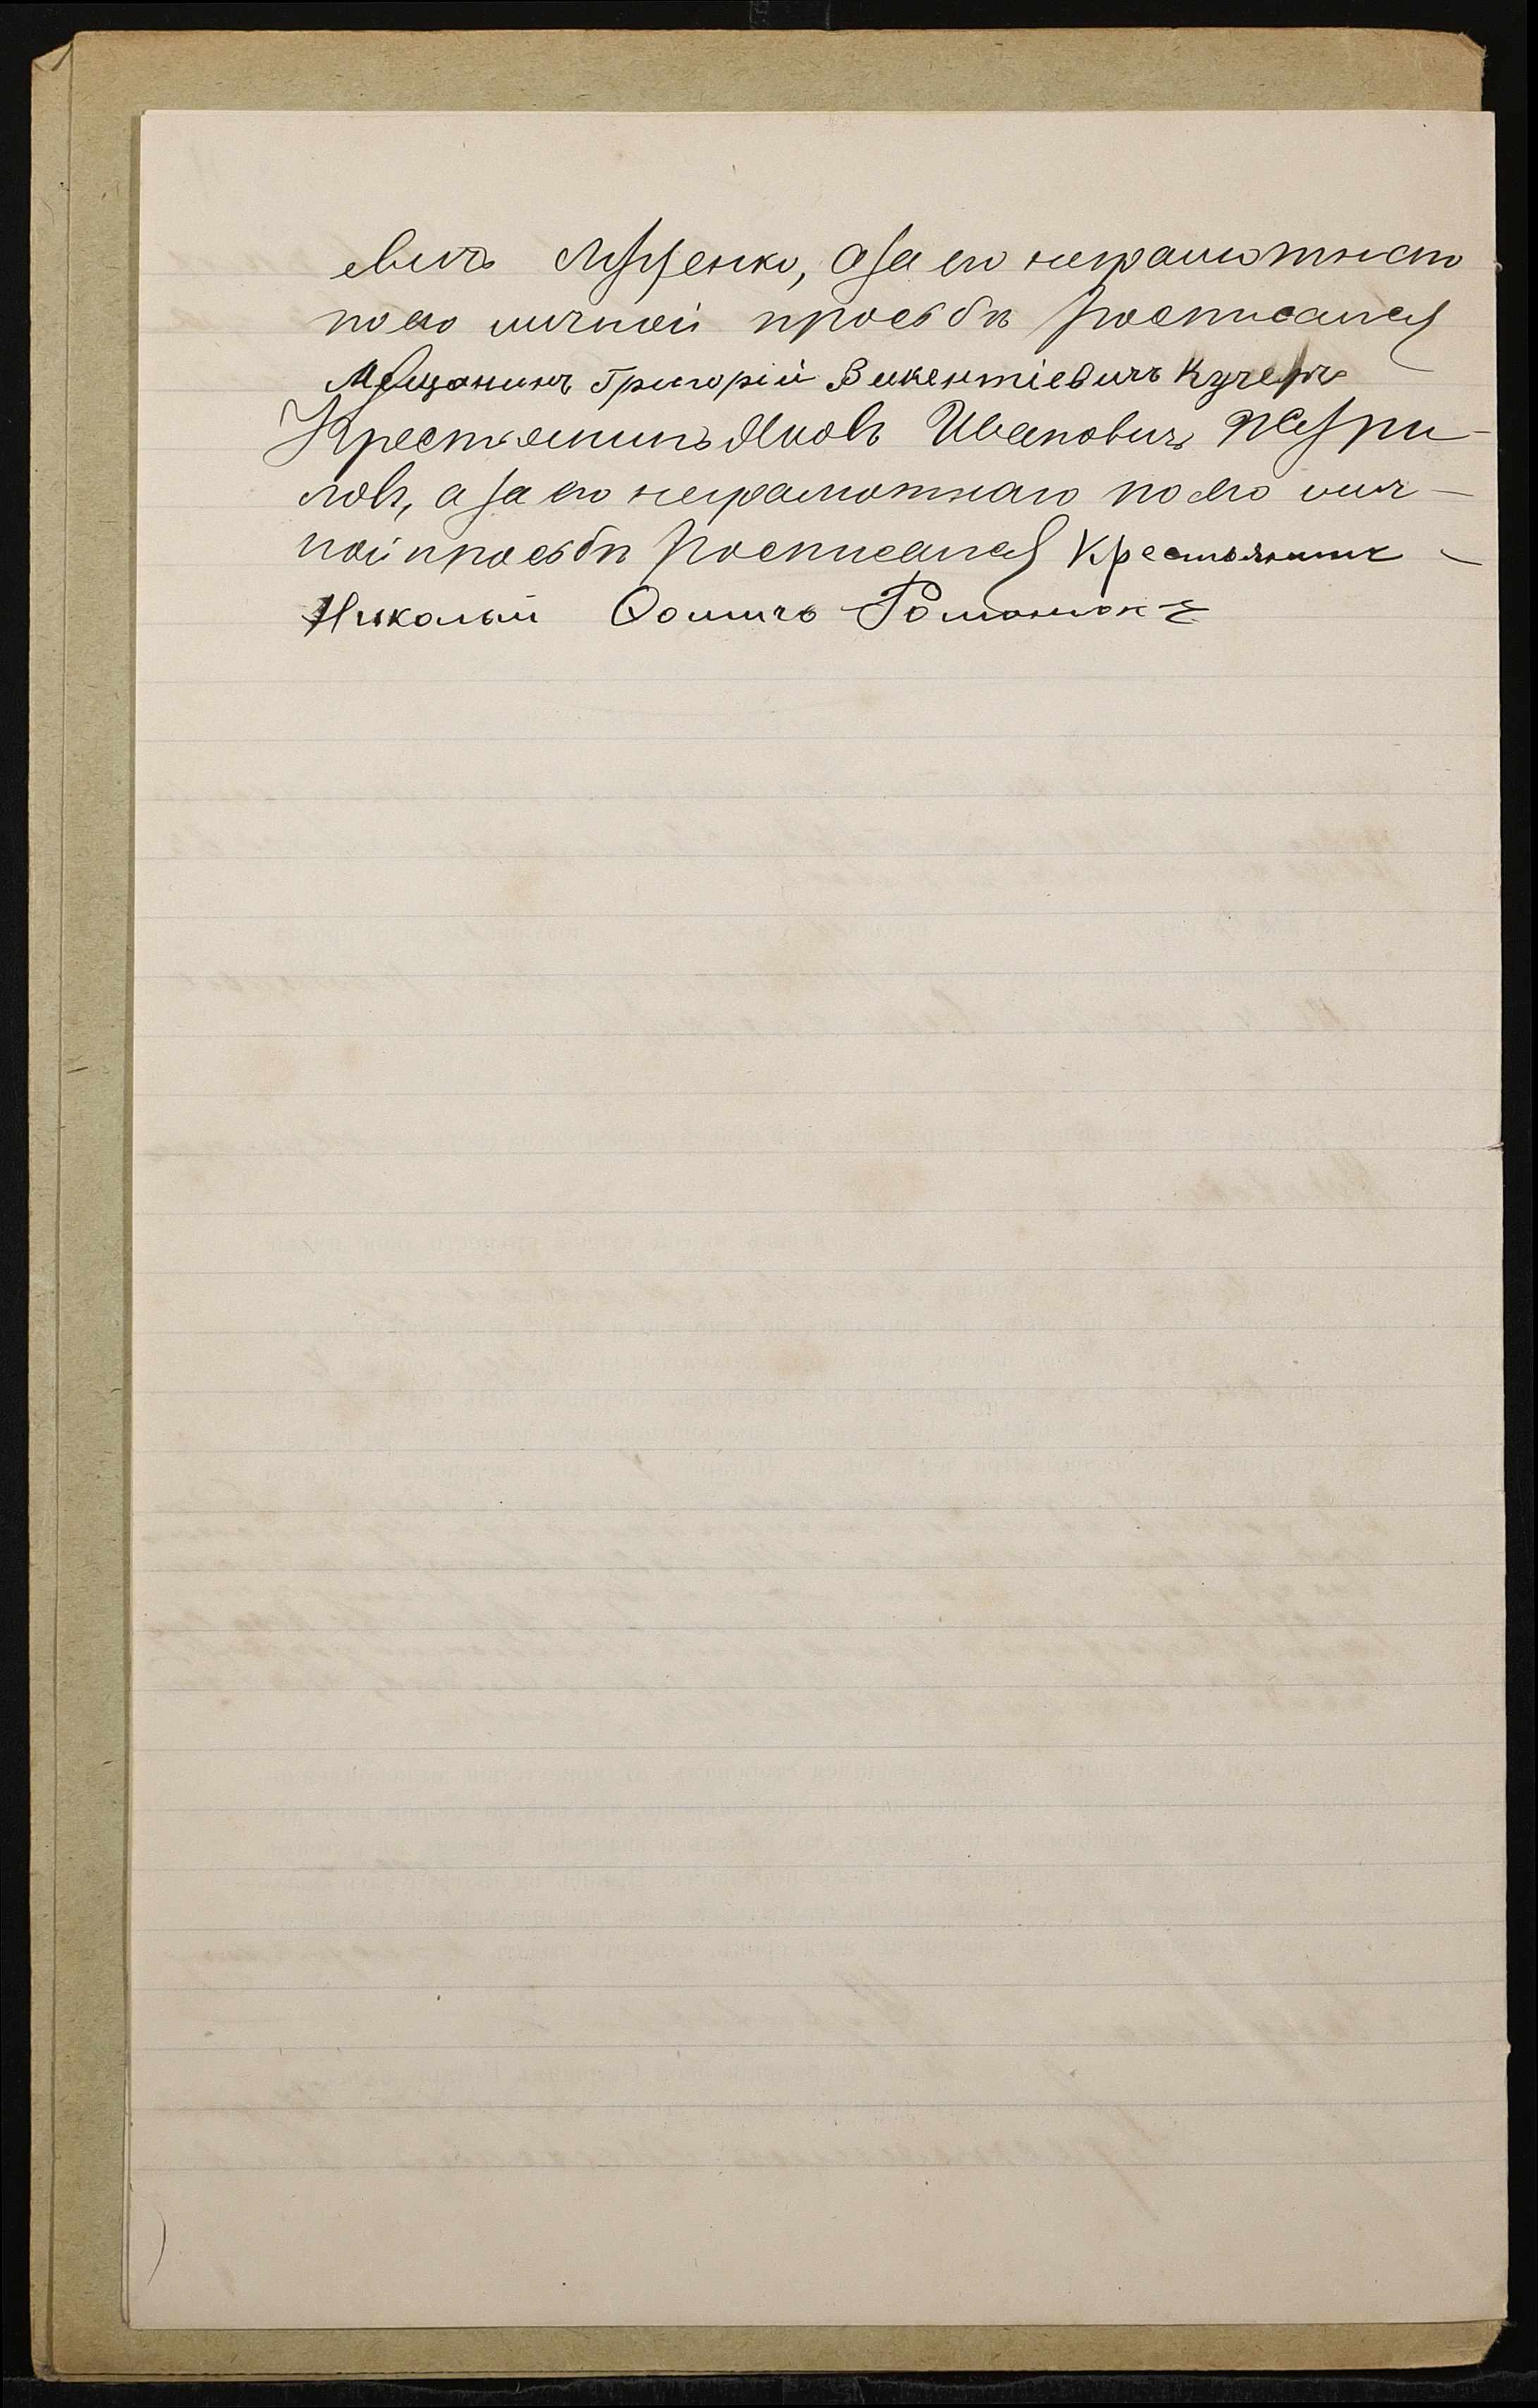 евичъ Луценко, а за его неграмотнаго
по его личной просьбѣ росписался
Мѣщанинъ Григорій Викентіевичъ Кучеръ
Крестьянинъ Яковъ Ивановичъ
ловъ, а за его неграмотнаго по его лич-
ной просьбѣ росписался Крестьянинъ -
Николай Фомичъ Романюкъ